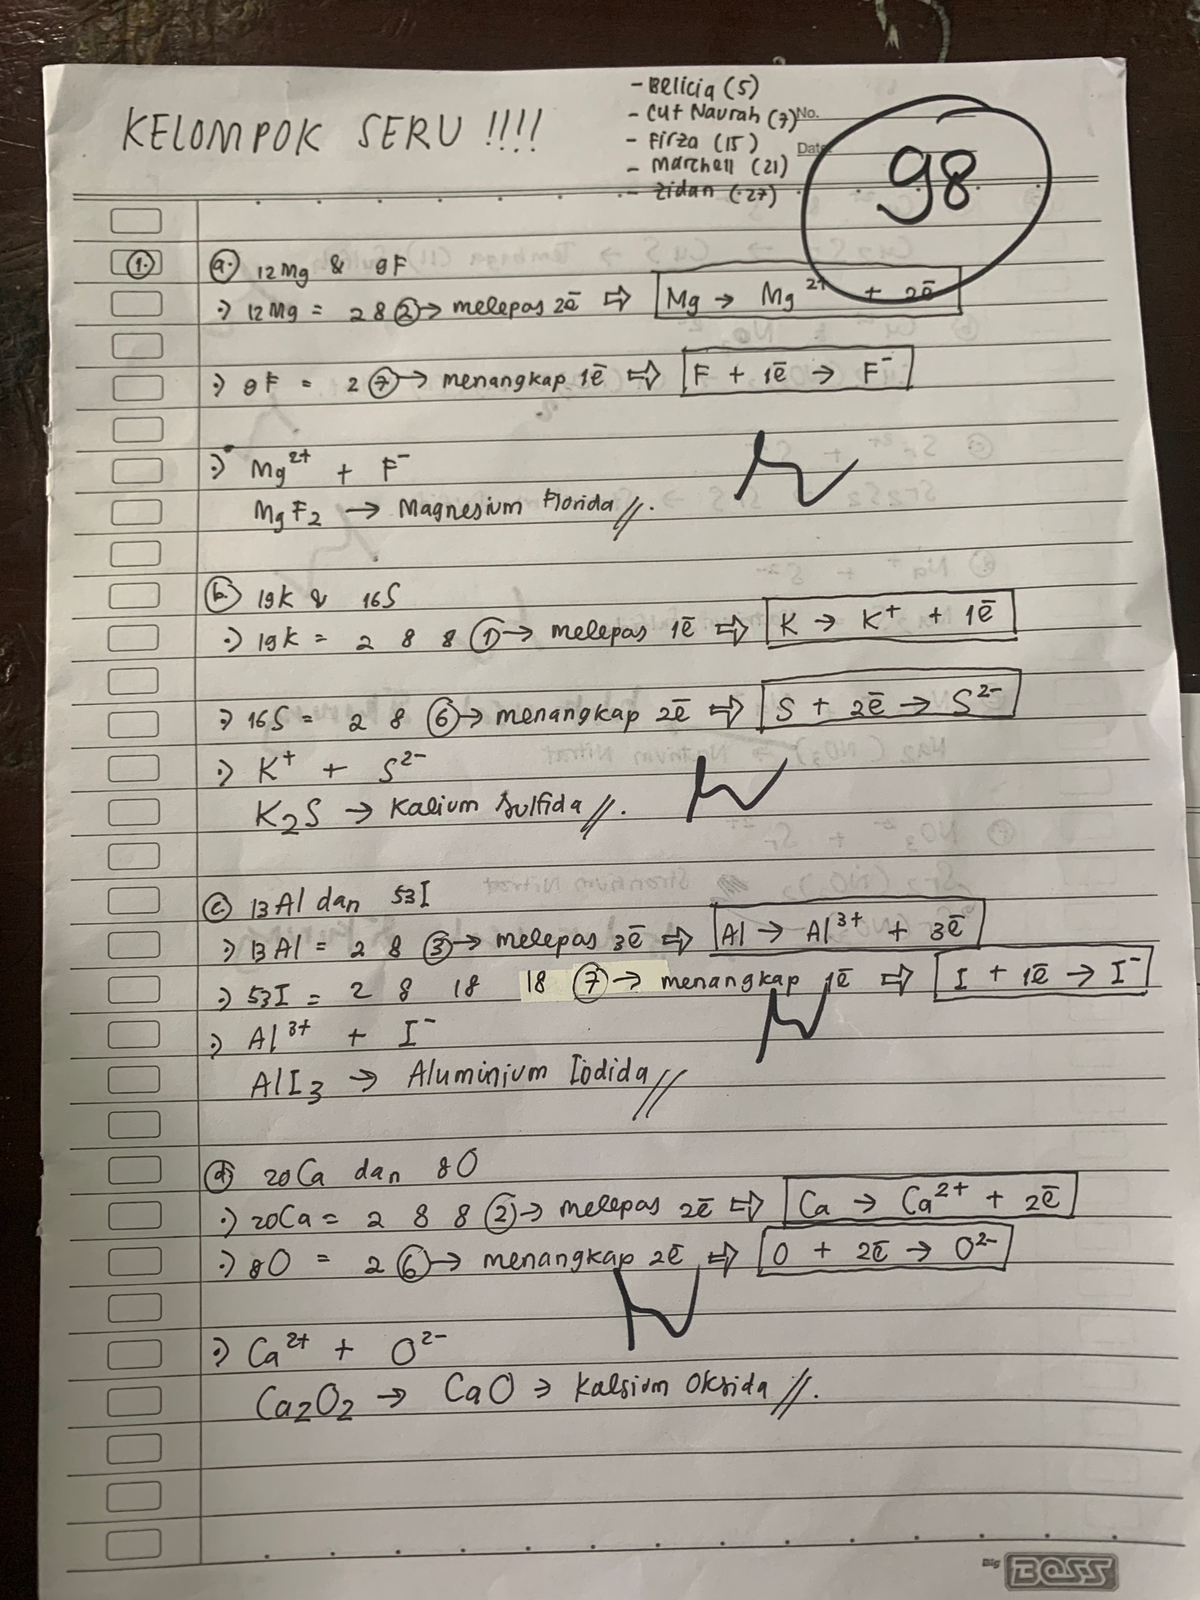 KELOMPOK SERU !!!!
- Belicia (5)
- Cut Naurah (7)
- Firza (15)
- Marchell (21)
- Zidan (27)
No.
Date
98
1. a. 12Mg & 9F
∴) 12Mg = 2 8 2 → melepas 2ē ⇨ Mg → Mg²⁺ + 2ē
∴) 9F = 2 7 → menangkap 1ē ⇨ F + 1ē → F⁻
∴) Mg²⁺ + F⁻
MgF₂ → Magnesium Florida //.
b. 19K & 16S
∴) 19K = 2 8 8 1 → melepas 1ē ⇨ K → K⁺ + 1ē
∴) 16S = 2 8 6 → menangkap 2ē ⇨ S + 2ē → S²⁻
∴) K⁺ + S²⁻
K₂S → Kalium Sulfida //.
c. 13Al dan 53I
∴) 13Al = 2 8 3 → melepas 3ē ⇨ Al → Al³⁺ + 3ē
∴) 53I = 2 8 18 18 7 → menangkap 1ē ⇨ I + 1ē → I⁻
∴) Al³⁺ + I⁻
AlI₃ → Aluminium Iodida //
d. 20Ca dan 8O
∴) 20Ca = 2 8 8 2 → melepas 2ē ⇨ Ca → Ca²⁺ + 2ē
∴) 8O = 2 6 → menangkap 2ē ⇨ O + 2ē → O²⁻
∴) Ca²⁺ + O²⁻
Ca₂O₂ → CaO → Kalsium Oksida //.
Big BOSS